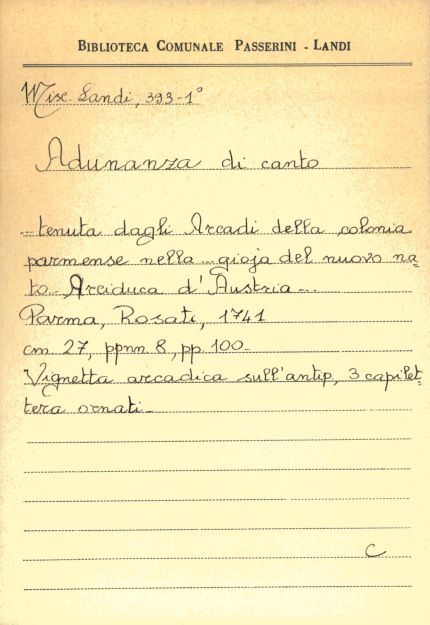 BIBLIOTECA COMUNALE PASSERINI - LANDI
Misc. Landi, 393-1°
Adunanza di canto
...tenuta dagli Arcadi della colonia
parmense nella ... gioja del nuovo na=
to Arciduca d'Austria...
Parma, Rosati, 1741
cm 27, ppnn 8, pp. 100-
Vignetta arcadica sull'antip, 3 capilet=
tera ornati-
C